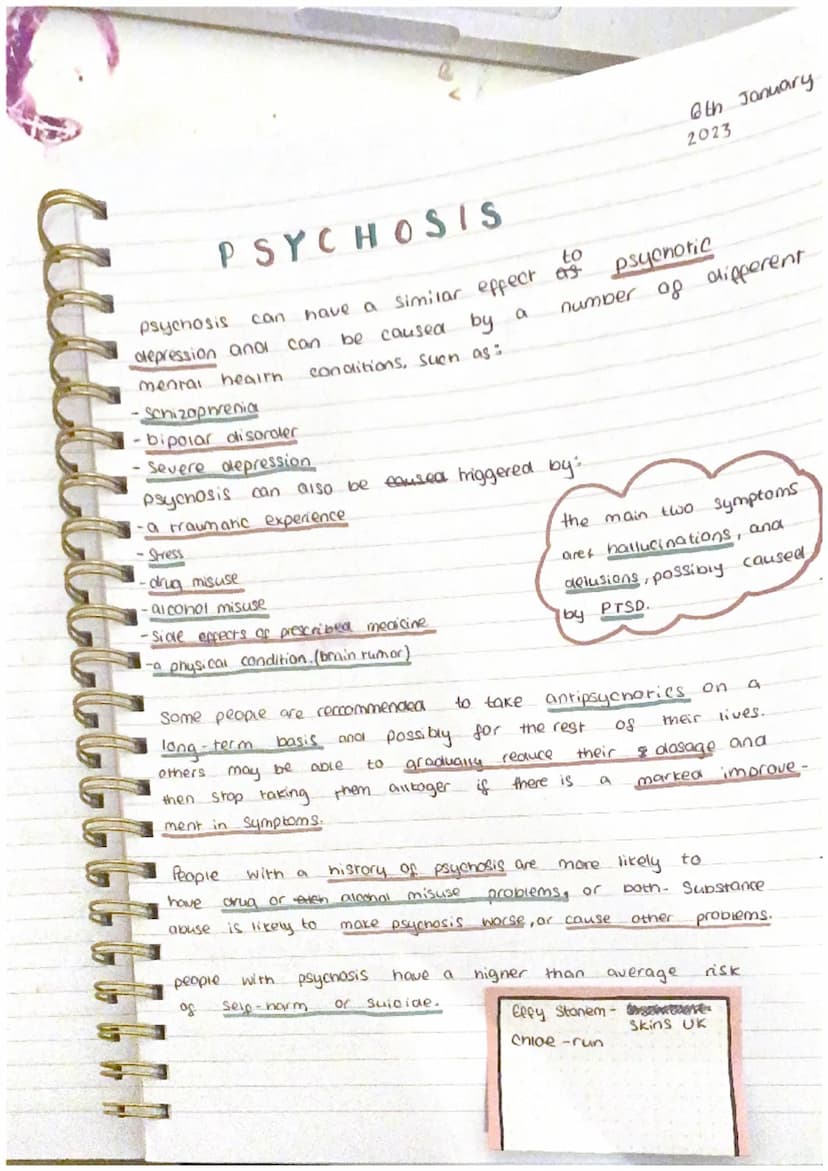 6th January
2023
PSYCHOSIS
psychosis can have a similar effect to psychotic
depression and can be caused by a number of different
mental health conditions, such as:
- schizophrenia
- bipolar disorder
- severe depression
psychosis can also be caused triggered by:
- a traumatic experience
- stress
- drug misuse
- alcohol misuse
- side effects of prescribed medicine
- a physical condition. (brain tumor)
the main two symptoms
are: hallucinations, and
delusions, possibly caused
by PTSD.
Some people are reccommended to take antipsychotics on a
long-term basis and possibly for the rest of their lives.
others may be able to gradually reduce their dosage and
then stop taking them altoger if there is a marked improve-
ment in symptoms.
People with a history of psychosis are more likely to
have drug or alcohol misuse problems, or both. Substance
abuse is likely to make psychosis worse, or cause other problems.
people with psychosis have a higher than average risk
of self-harm or suicide.
Effy Stonem -
Skins UK
Chloe - run